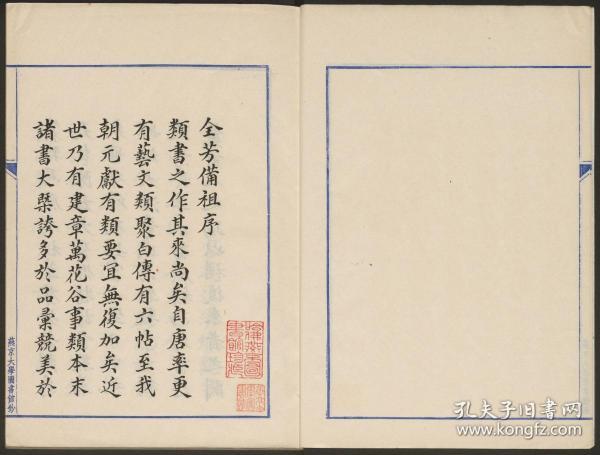 全芳備祖序
類書之作其來尚矣自唐率更
有藝文類聚白傳有六帖至我
朝元獻有類要冝無復加矣近
世乃有建章萬花谷事類本末
諸書大槩誇多於品彙競美於
燕京大學圖書館鈔
孔夫子旧书网
www.kongfz.com